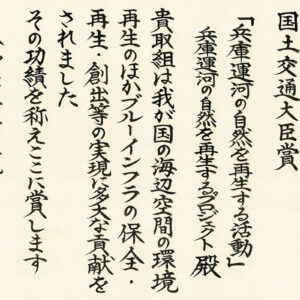 国土交通大臣賞
「兵庫運河の自然を再生する活動」
兵庫運河の自然を再生するプロジェクト 殿
貴取組は我が国の海辺空間の環境
再生のほかブルーインフラの保全・
再生・創出等の実現に多大な貢献を
されました
その功績を称えここに賞します